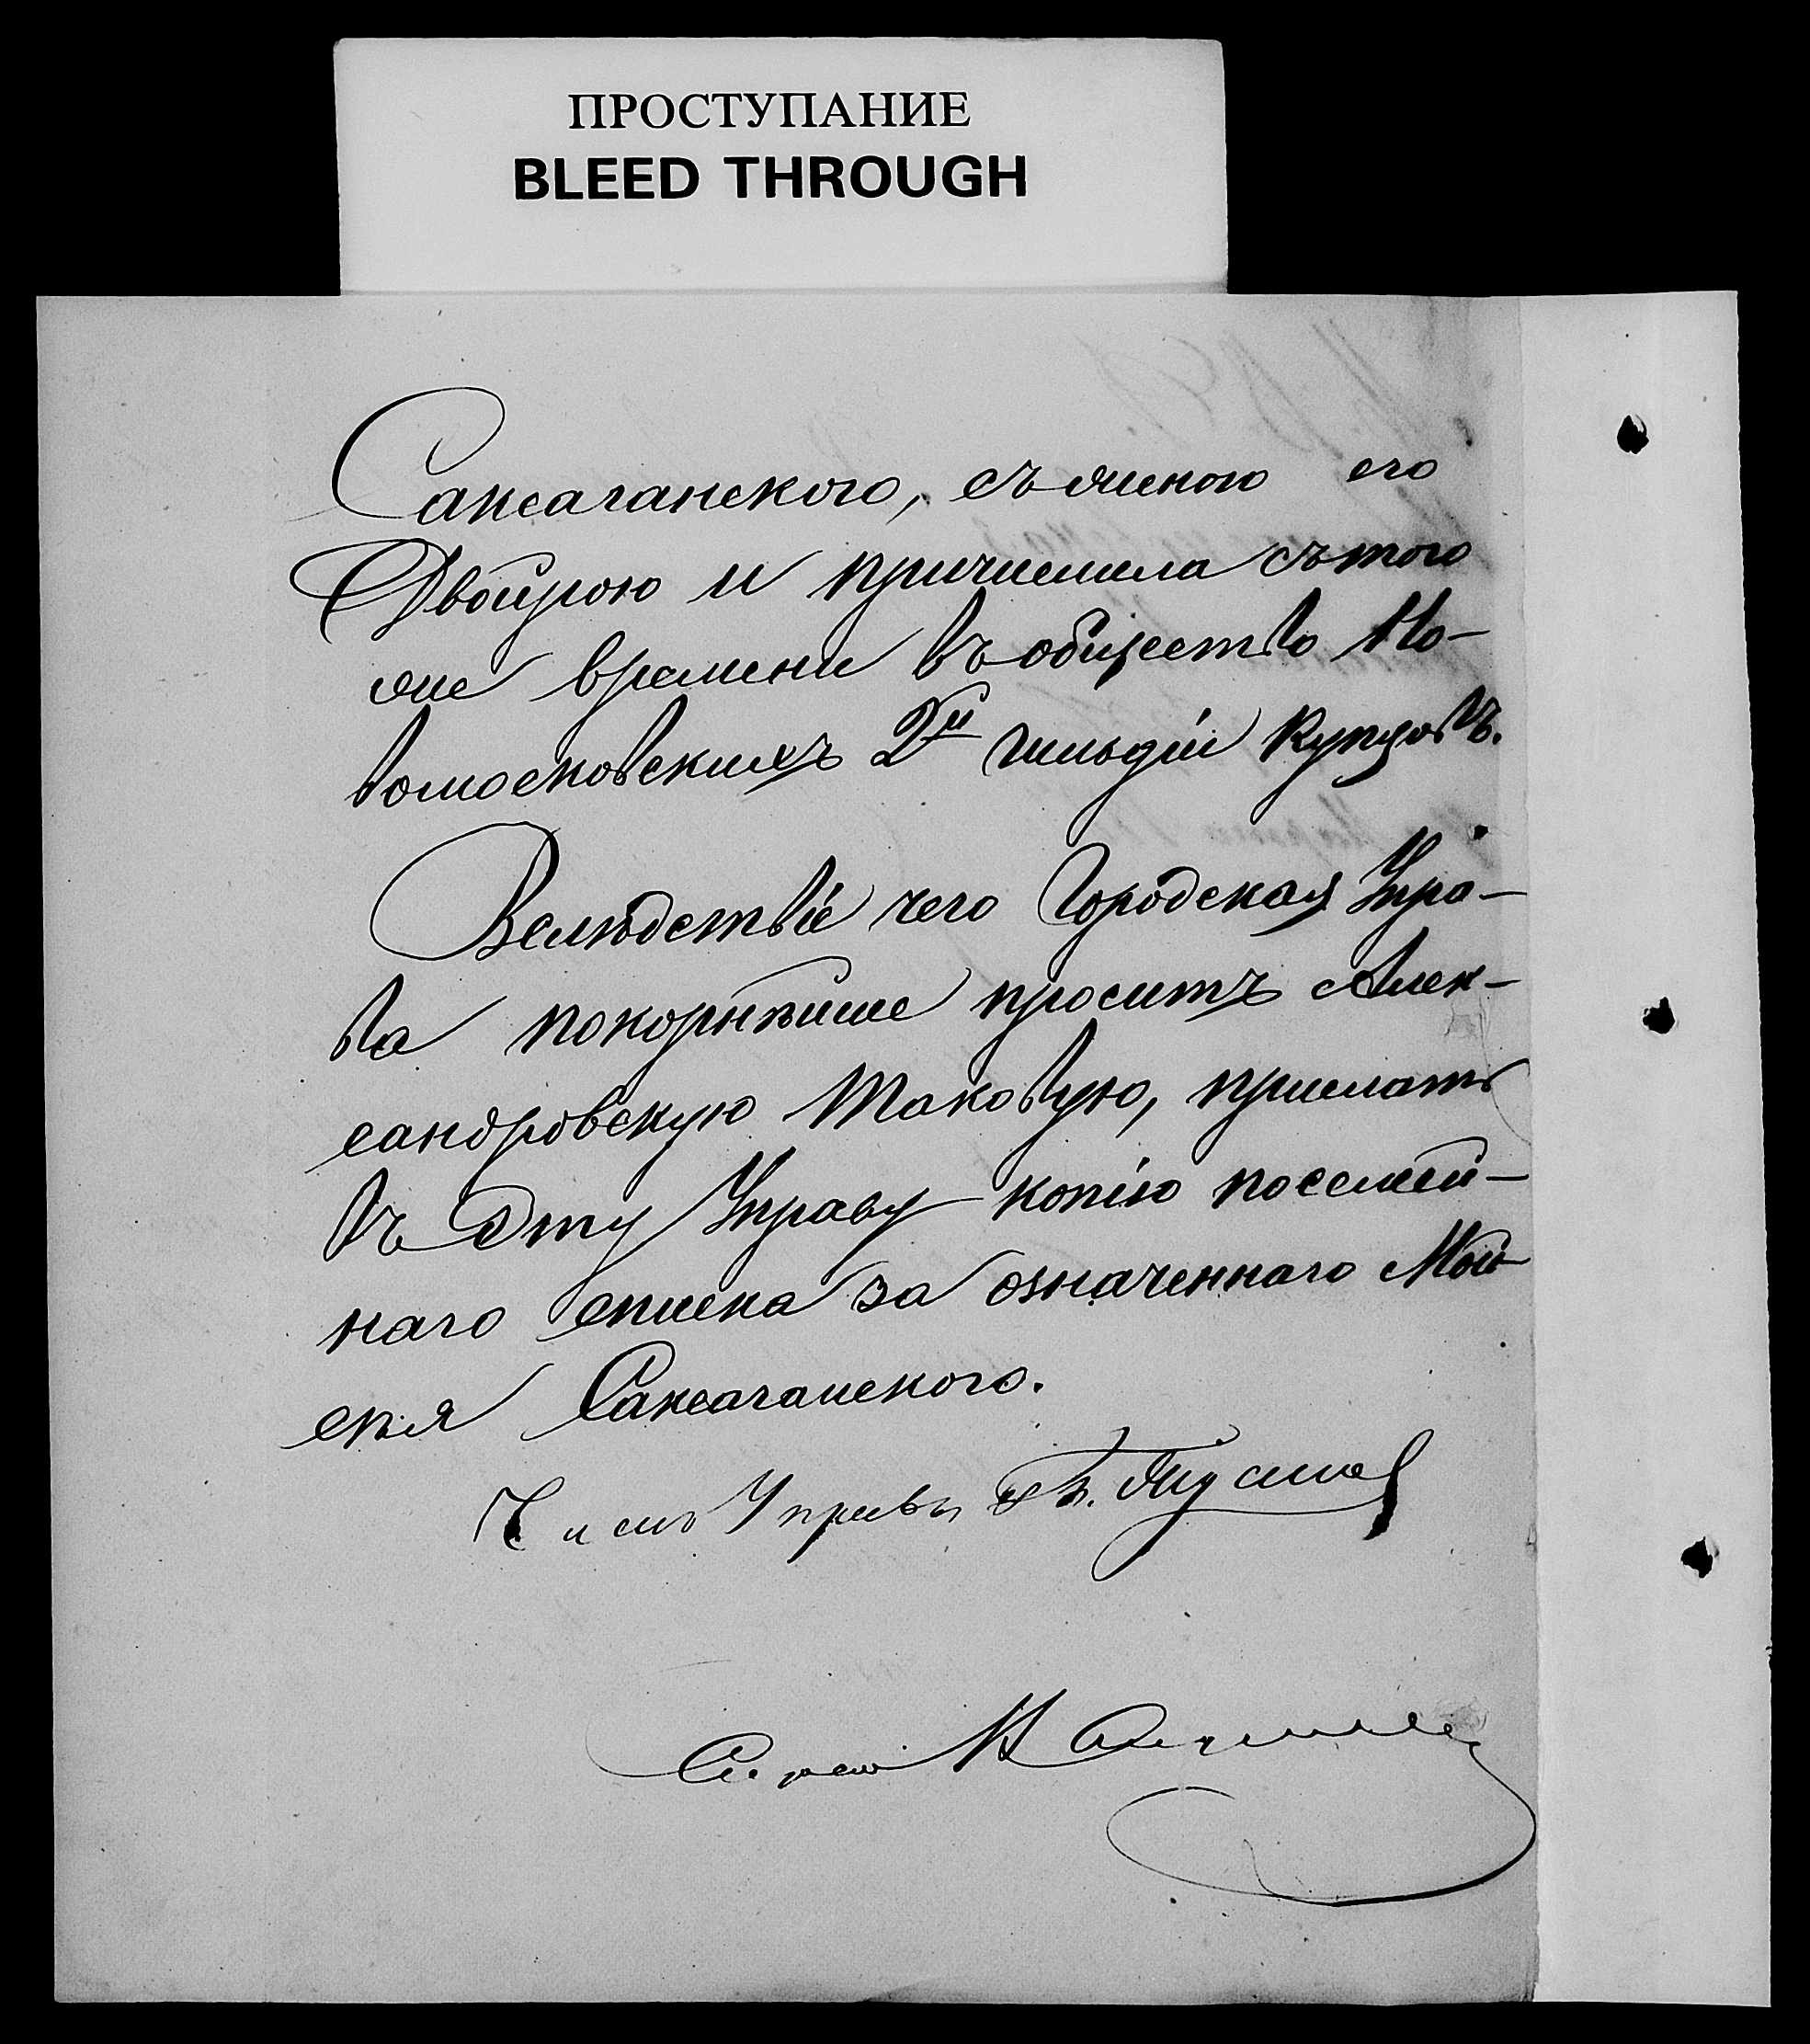 ПРОСТУПАНИЕ
BLEED THROUGH
Саксаганского, съ женою его
Двойрою и причислила съ того
же времени въ общество Но-
вомосковскихъ 2й гильдіи купцовъ.
Вслѣдствіе чего Городская Упра-
ва покорнѣйше проситъ Алек-
сандровскую таковую, прислать
въ эту Управу копію посемей-
наго списка за означеннаго Мой-
сѣя Саксаганского.
Членъ Управы